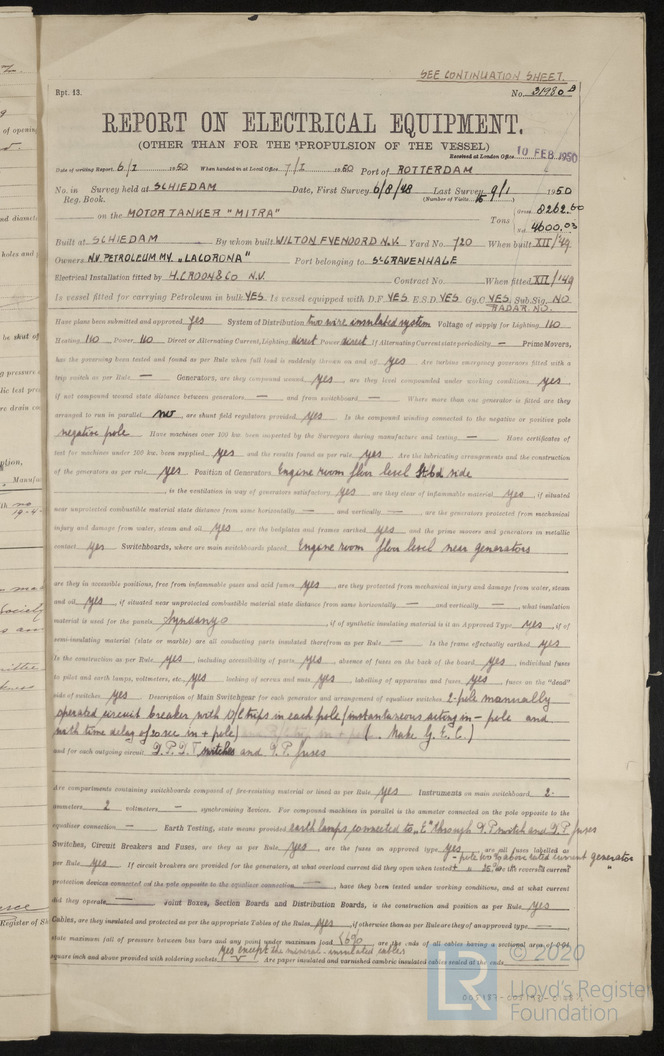 SEE CONTINUATION SHEET.
Rpt. 13.
No. 31980 B
REPORT ON ELECTRICAL EQUIPMENT.
(OTHER THAN FOR THE PROPULSION OF THE VESSEL)
Received at London Office 10 FEB 1950
Date of writing Report 6/I 1950 When handed in at Local Office 7/I 1950 Port of ROTTERDAM
No. in Survey held at SCHIEDAM Date, First Survey 6/8/48 Last Survey 9/1 1950
Reg. Book. (Number of Visits 15)
on the MOTOR TANKER "MITRA" Tons Gross 8262.60
Net 4600.03
Built at SCHIEDAM By whom built WILTON FYENOORD N.V. Yard No. 720 When built XII/'49
Owners N.V. PETROLEUM MY. „LACORONA" Port belonging to S'GRAVENHAGE
Electrical Installation fitted by H. CROON & CO N.V. Contract No. When fitted XII/149
Is vessel fitted for carrying Petroleum in bulk YES. Is vessel equipped with D.F. YES. E.S.D. YES Gy.C. YES. Sub.Sig. NO
RADAR. NO.
Have plans been submitted and approved yes System of Distribution two wire insulated system Voltage of supply for Lighting 110
Heating 110 Power 110 Direct or Alternating Current, Lighting direct Power direct If Alternating Current state periodicity — Prime Movers,
has the governing been tested and found as per Rule when full load is suddenly thrown on and off yes Are turbine emergency governors fitted with a
trip switch as per Rule — Generators, are they compound wound yes are they level compounded under working conditions yes
if not compound wound state distance between generators — and from switchboard — Where more than one generator is fitted are they
arranged to run in parallel no are shunt field regulators provided yes Is the compound winding connected to the negative or positive pole
negative pole Have machines over 100 kw. been inspected by the Surveyors during manufacture and testing — Have certificates of
test for machines under 100 kw. been supplied yes and the results found as per rule yes Are the lubricating arrangements and the construction
of the generators as per rule yes Position of Generators Engine room floor level Stbd side
is the ventilation in way of generators satisfactory yes are they clear of inflammable material yes if situated
near unprotected combustible material state distance from same horizontally — and vertically — are the generators protected from mechanical
injury and damage from water, steam and oil yes are the bedplates and frames earthed yes and the prime movers and generators in metallic
contact yes Switchboards, where are main switchboards placed Engine room floor level near generators
are they in accessible positions, free from inflammable gases and acid fumes yes are they protected from mechanical injury and damage from water, steam
and oil yes if situated near unprotected combustible material state distance from same horizontally — and vertically — what insulation
material is used for the panels Syndanyo if of synthetic insulating material is it an Approved Type yes if of
semi-insulating material (slate or marble) are all conducting parts insulated therefrom as per Rule — Is the frame effectually earthed yes
Is the construction as per Rule yes including accessibility of parts yes absence of fuses on the back of the board yes individual fuses
to pilot and earth lamps, voltmeters, etc. yes locking of screws and nuts yes labelling of apparatus and fuses yes fuses on the "dead"
side of switches yes Description of Main Switchgear for each generator and arrangement of equaliser switches 2-pole manually
operated circuit breaker with O/C trips in each pole (instantaneous acting in — pole and
with time delay of 20 sec in + pole) (. Make G.E.C.)
and for each outgoing circuit D.P.D.T switches and D.P. fuses
Are compartments containing switchboards composed of fire-resisting material or lined as per Rule yes Instruments on main switchboard 2
ammeters 2 voltmeters — synchronising devices. For compound machines in parallel is the ammeter connected on the pole opposite to the
equaliser connection — Earth Testing, state means provided earth lamps, connected to „E" through D.P. switch and D.P. fuses
Switches, Circuit Breakers and Fuses, are they as per Rule yes are the fuses an approved type yes are all fuses labelled as
per Rule yes If circuit breakers are provided for the generators, at what overload current did they open when tested are the reversed current
protection devices connected on the pole opposite to the equaliser connection — have they been tested under working conditions, and at what current
did they operate — Joint Boxes, Section Boards and Distribution Boards, is the construction and position as per Rule yes
Cables, are they insulated and protected as per the appropriate Tables of the Rules yes if otherwise than as per Rule are they of an approved type —
state maximum fall of pressure between bus bars and any point under maximum load are the ends of all cables having a sectional area of 0.04
yes except the mineral-insulated cables
square inch and above provided with soldering sockets Are paper insulated and varnished cambric insulated cables sealed at the ends
© 2020
LR
Lloyd's Register
Foundation